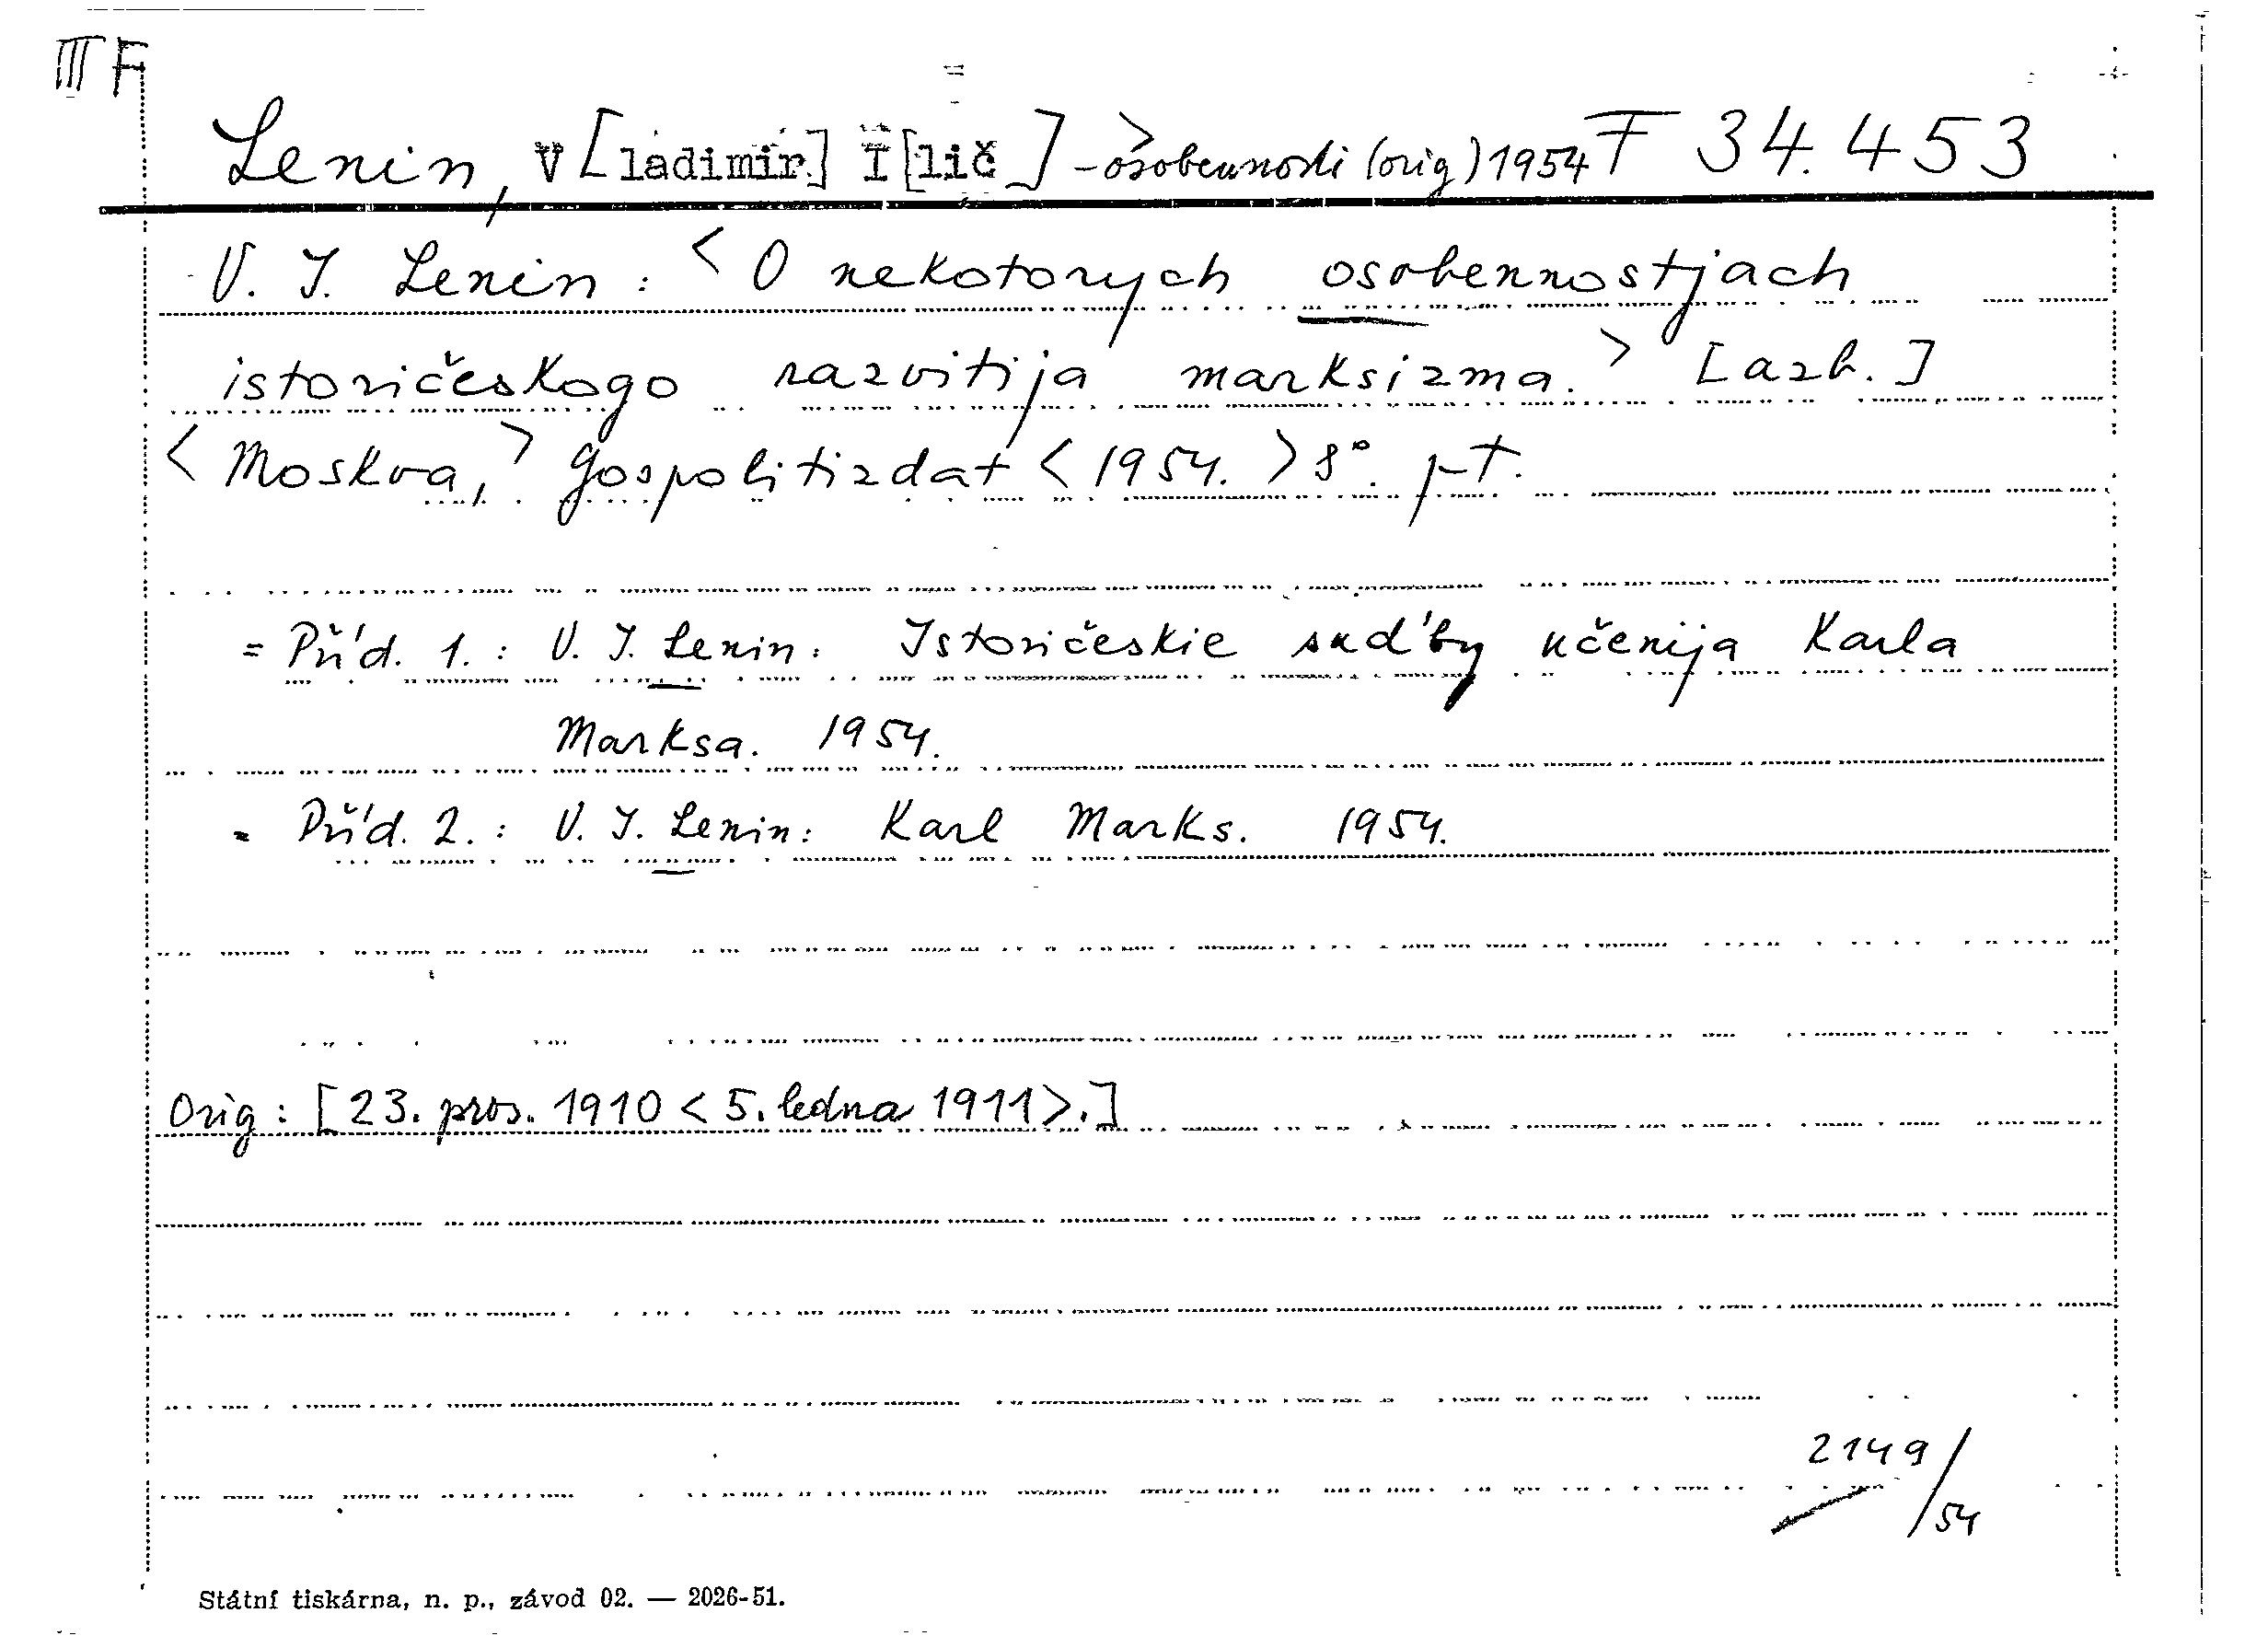 III F
Lenin, V[ladimir] I[lič] - osobennosti (orig) 1954 F 34.453
V. I. Lenin: < O nekotorych osobennostjach
istoričeskogo razvitija marksizma. > [azb.]
< Moskva, > Gospolitizdat < 1954. > 8°. pt.
= Příd. 1.: V. I. Lenin: Istoričeskie suď'by učenija Karla
Marksa. 1954.
= Příd. 2.: V. I. Lenin: Karl Marks. 1954.
Orig: [23. pros. 1910 < 5. ledna 1911>.]
2149/54
Státní tiskárna, n. p., závod 02. — 2026-51.